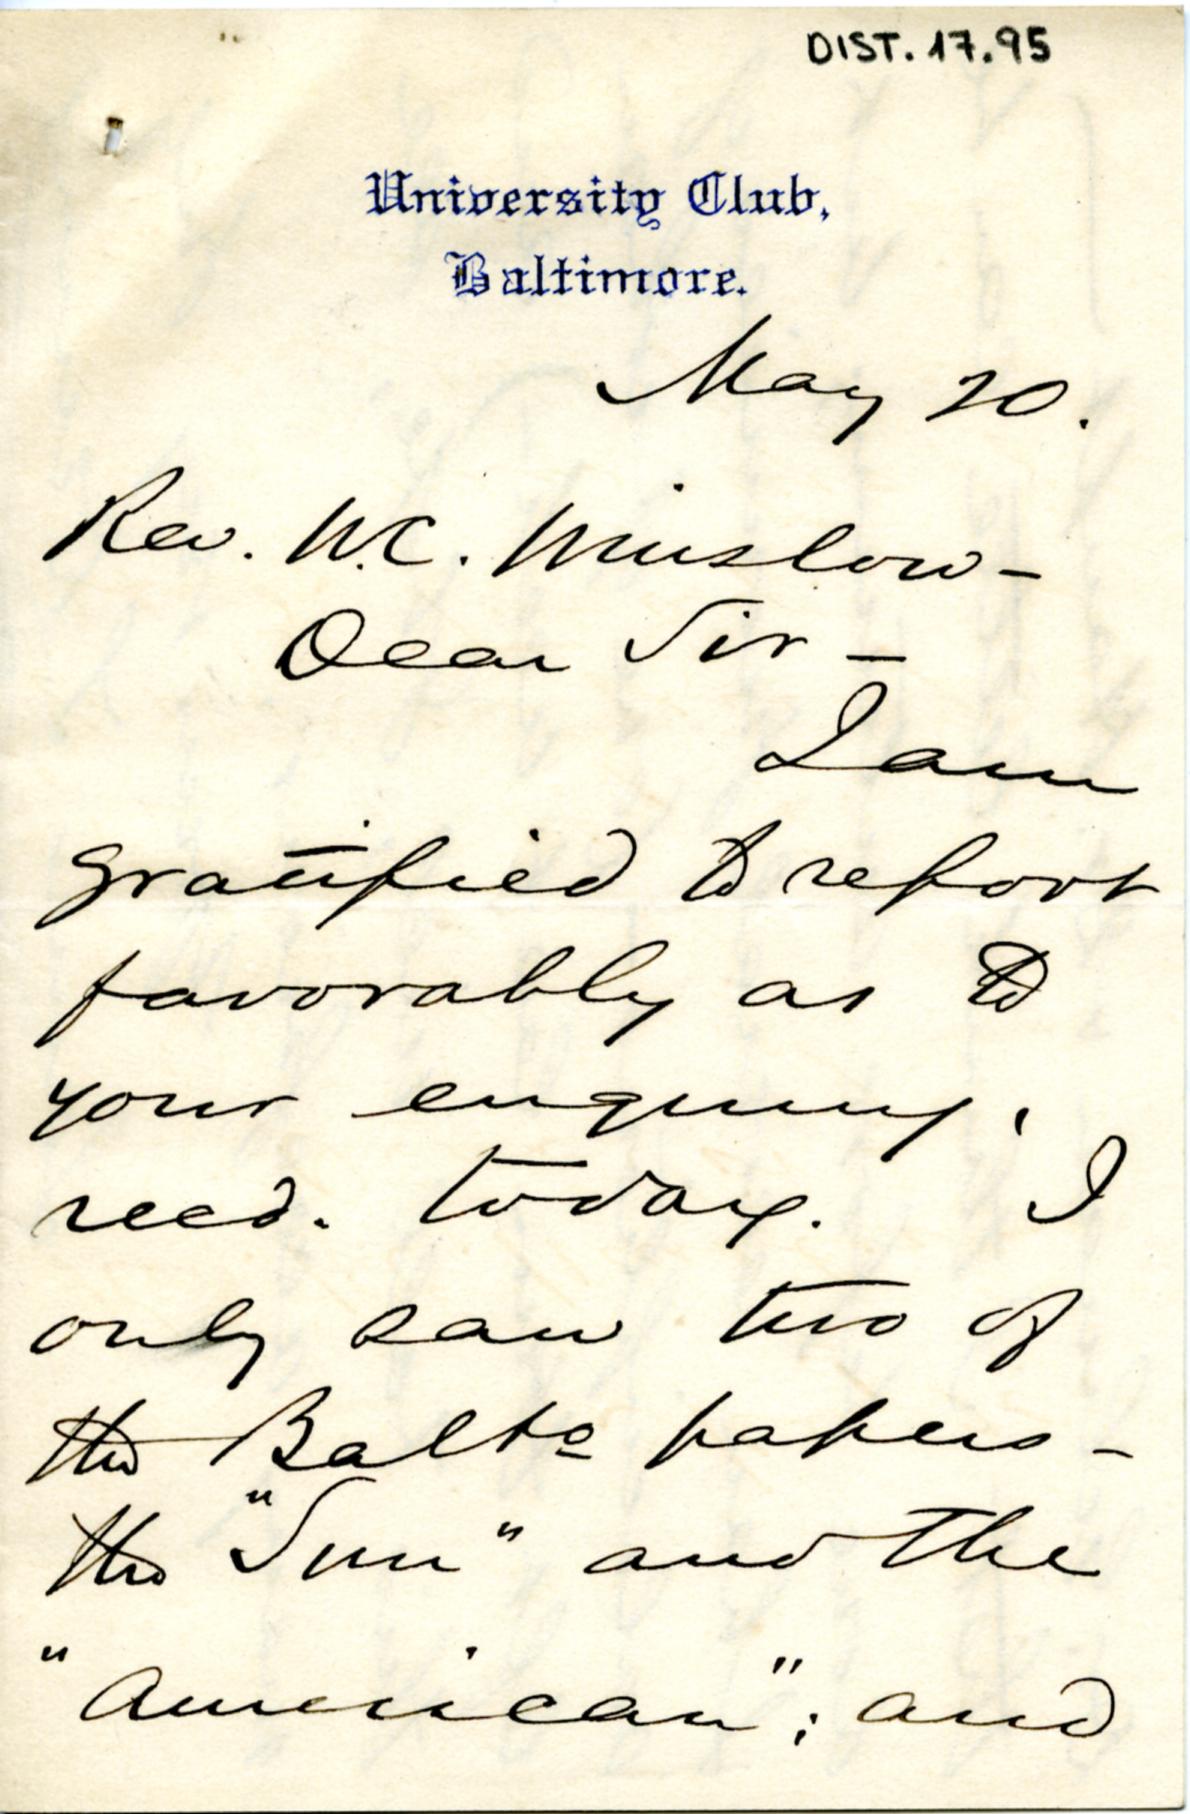 DIST. 17.95
University Club,
Baltimore.
May 20.
Rev. W.C. Winslow -
Dear Sir -
I am
gratified to report
favorably as to
your enquiry,
recd. today. I
only saw two of
the Balto papers -
the "Sun" and the
"American"; and